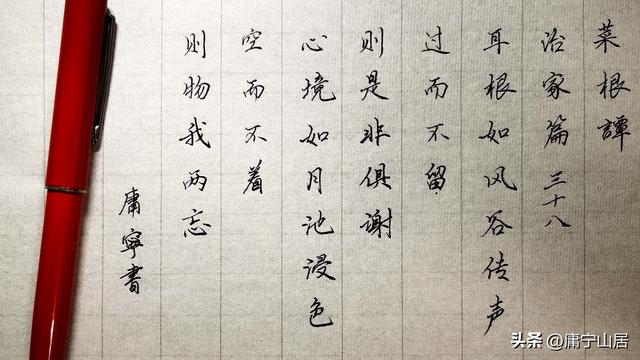 菜根譚
治家篇 三十八
耳根如风谷传声
过而不留
则是非俱谢
心境如月池浸色
空而不着
则物我两忘
庸寧書
头条 @庸宁山居